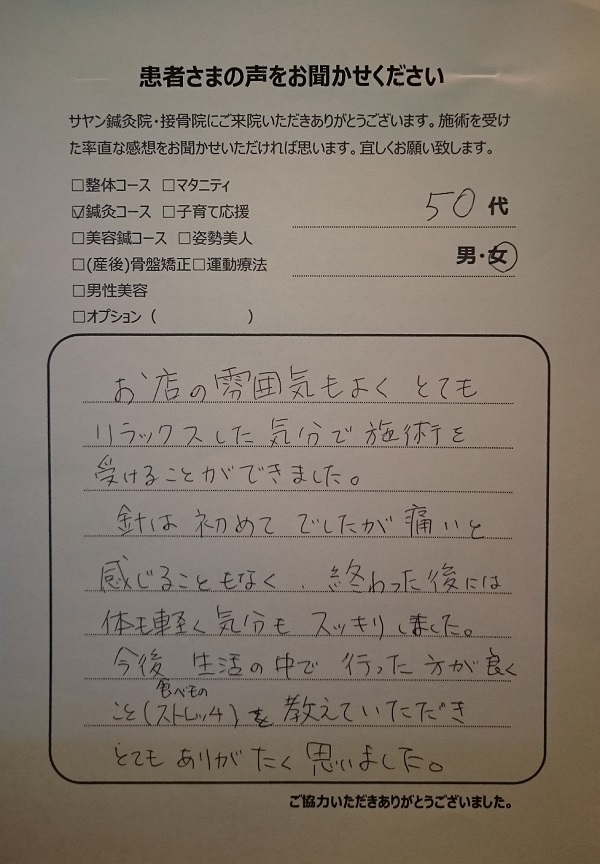 患者さまの声をお聞かせください
サヤン鍼灸院・接骨院にご来院いただきありがとうございます。施術を受け
た率直な感想をお聞かせいただければ思います。宜しくお願い致します。
□整体コース □マタニティ
☑鍼灸コース □子育て応援
□美容鍼コース □姿勢美人
□(産後)骨盤矯正□運動療法
□男性美容
□オプション（ ）
50 代
男・女
お店の雰囲気もよく とても
リラックスした気分で施術を
受けることができました。
針は初めてでしたが痛いと
感じることもなく、終わった後には
体も軽く気分もスッキリしました。
今後 生活の中で 行った方が良く
食べもの
こと(ストレッチ)を教えていただき
とてもありがたく思いました。
ご協力いただきありがとうございました。